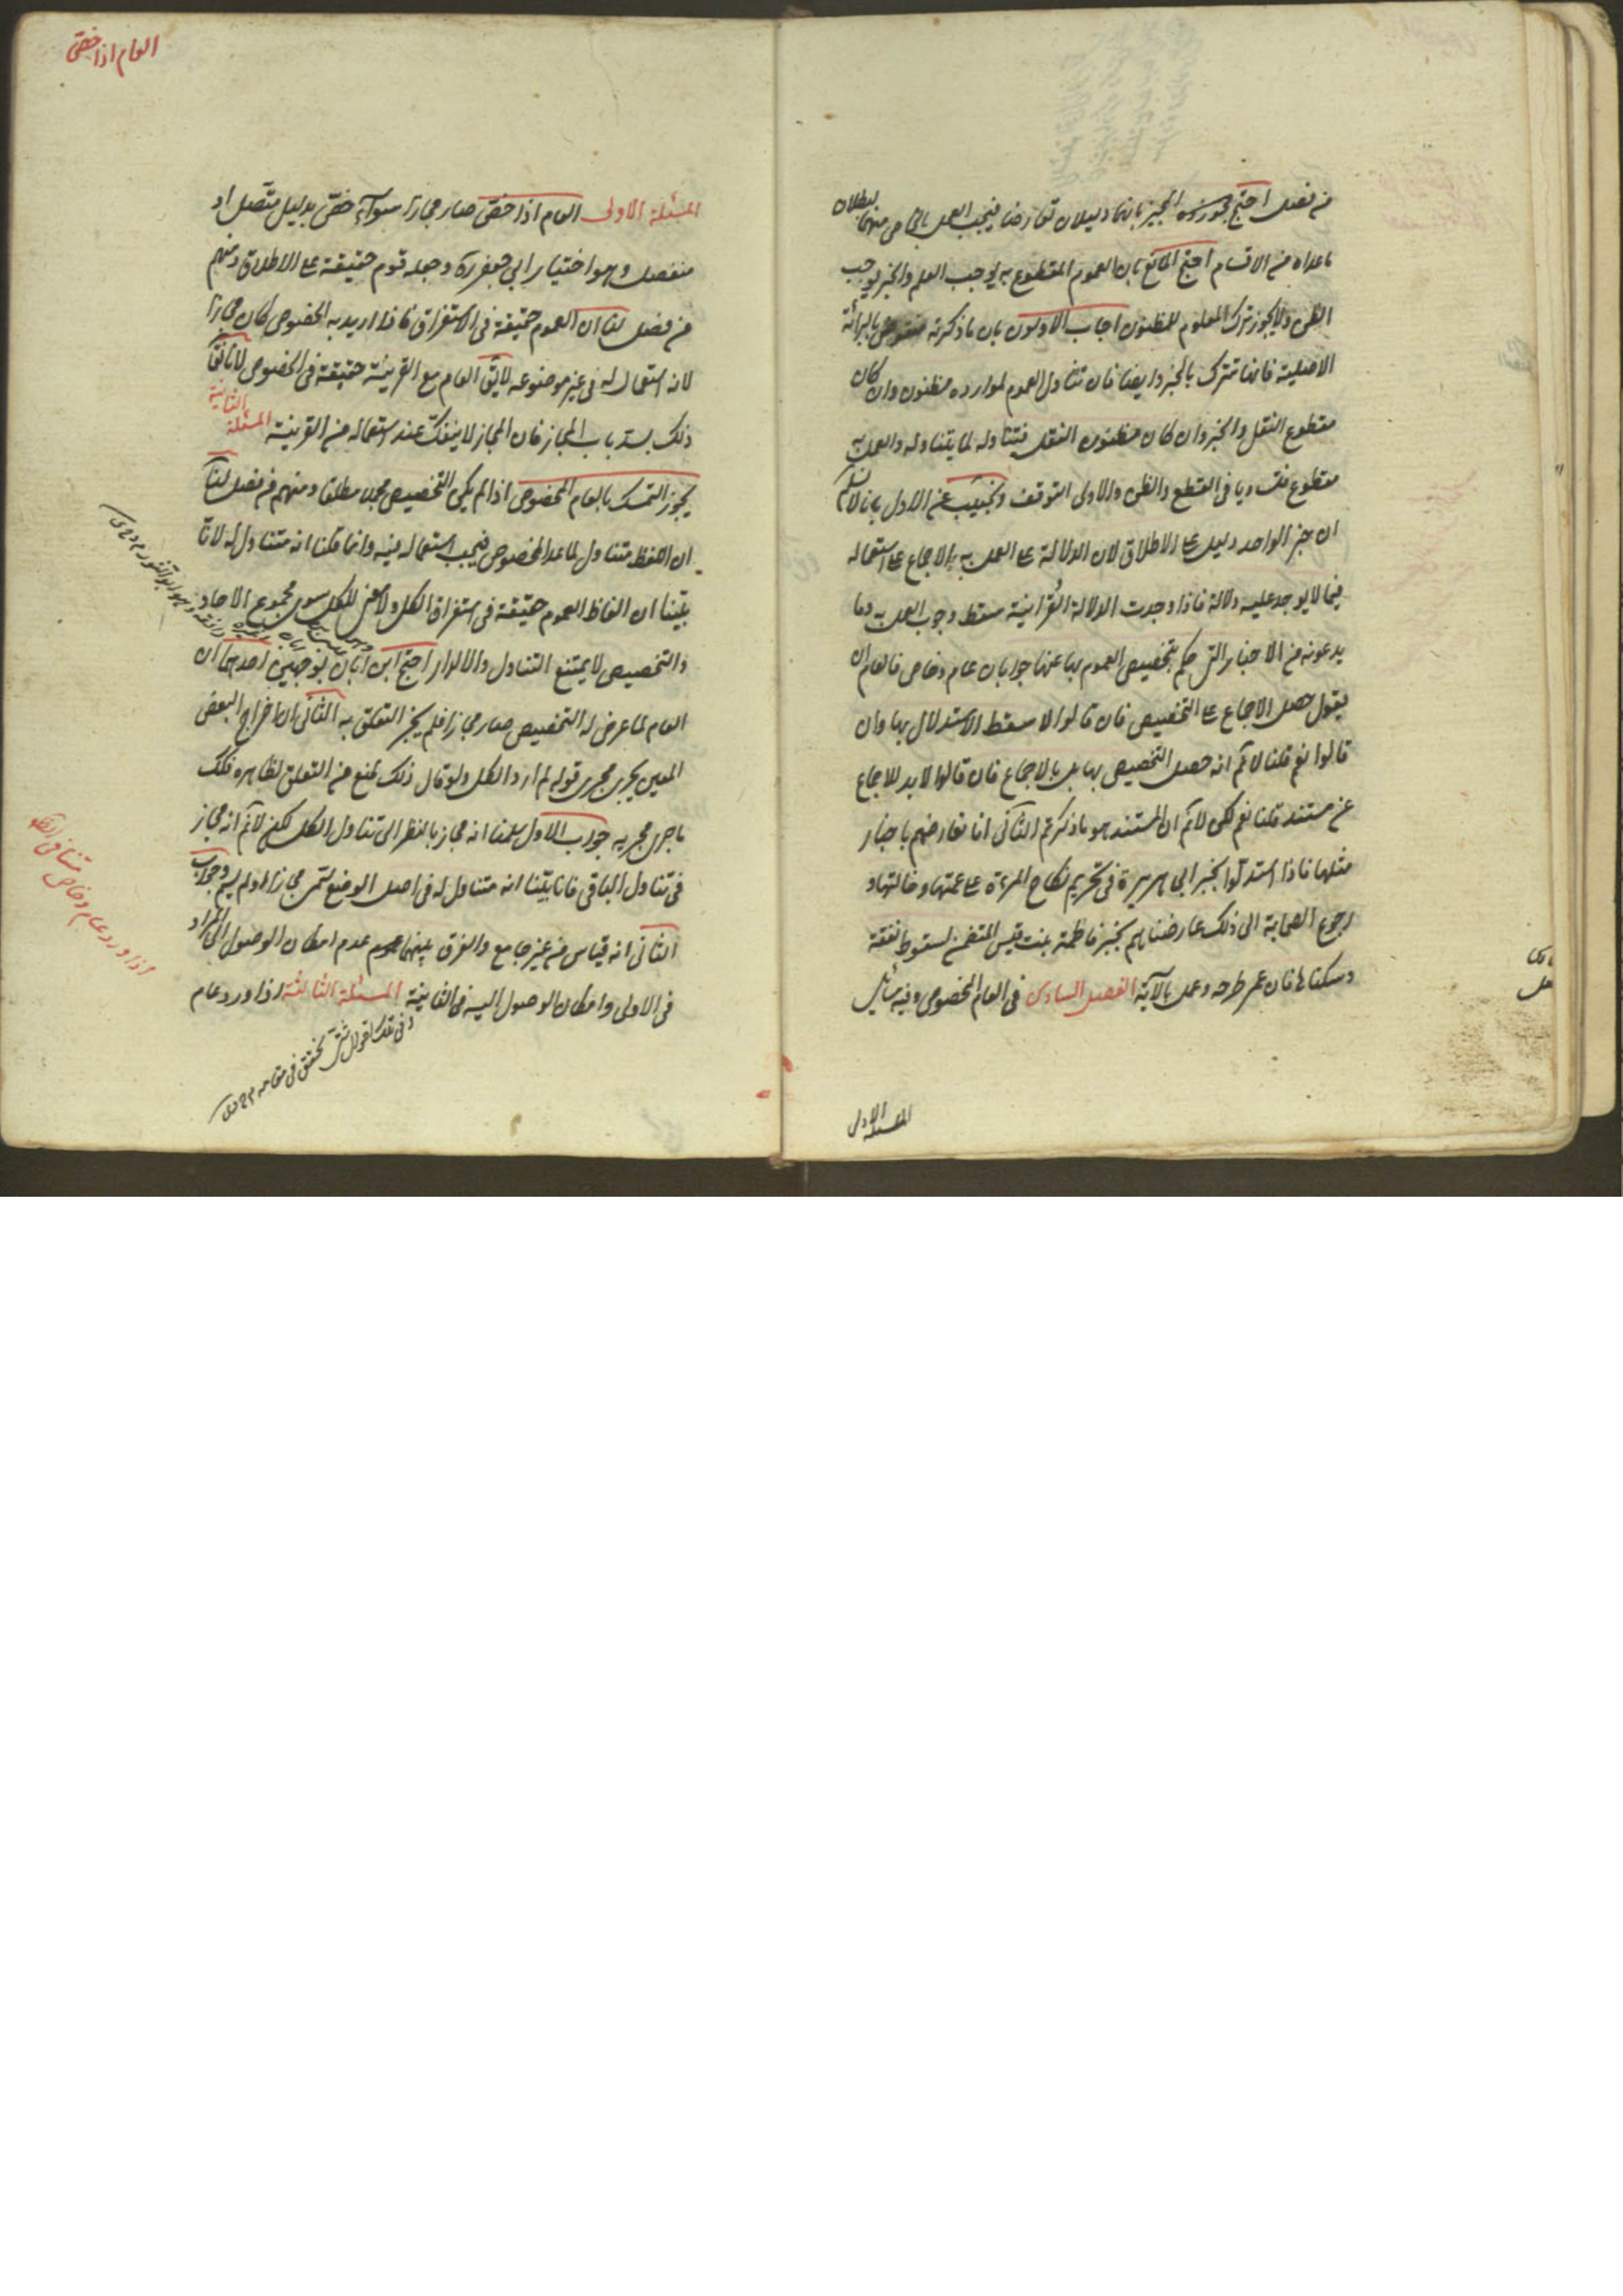 من فصل احتج مجوزوه الخبر بانهما دليلان تعارضا فيجب العمل بالخاص منهما لبطلان
ما عداه من الاقسام احتج المانع بان العموم المقطوع به يوجب العلم والخبر يوجب
الظن ولا يجوز ترك المعلوم للمظنون اجاب الاولون بان ما ذكرته منقوض بالبرائة
الاصلية فانها تترك بالخبر وايضا فان تناول العموم لموارده مظنون وان كان
مقطوع النقل والخبر وان كان مظنون النقل فتناوله لما يتناوله والعمل به
مقطوع فتساويا في القطع والظن والاولى التوقف ونجيب عن الاول بانا لا نسلم
ان خبر الواحد دليل على الاطلاق لان الدلالة على العمل به الاجماع على استعماله
فيما لا يوجد عليه دلالة فاذا وجدت الدلالة القرانية سقط وجوب العمل به وما
يدعونه من الاخبار التي حكم بتخصيص العموم بها عنها جوابان عام وخاص فالعام ان
يقول حصل الاجماع على التخصيص فان قالوا لا سقط الاستدلال بها وان
قالوا نعم قلنا لا نم انه حصل التخصيص بها بل بالاجماع فان قالوا لا بد للاجماع
عن مستند قلنا نعم لكن لا نم ان المستند هو ما ذكرتم الثاني انا نعارضهم باخبار
مثلها فاذا استدلوا بخبر ابي هريرة في تحريم نكاح المرءة على عمتها وخالتها و
رجوع الصحابة الى ذلك عارضناهم بخبر فاطمة بنت قيس المتضمن لسقوط نفقة
وسكناها فان عمر طرحه وعمل بالآية الفصل السادس في العام المخصوص وفيه مسائل
المسئلة الاولى
العام اذا خص
المسئلة الاولى العام اذا خص صار مجازا سوآء خص بدليل متصل او
منفصل وهو اختيار ابي جعفر ره وجعله قوم حقيقة على الاطلاق ومنهم
من فصل لنا ان العموم حقيقة في الاستغراق فاذا اريد به الخصوص كان مجازا
لانه استعمال له في غير موضوعه لا يق العام مع القرينة حقيقة في الخصوص لانا نقول
ذلك يسد باب المجاز فان المجاز لا ينفك عند استعماله من القرينة المسئلة الثانية
يجوز التمسك بالعام المخصوص اذا لم يكن التخصيص مجملا مطلقا ومنهم من فصل لنا
ان اللفظ متناول لما عدا المخصوص فيجب استعماله فيه وانما قلنا انه متناول له لانا
بينا ان الفاظ العموم حقيقة في استغراق الكل ولا معنى للكل سوى مجموع الاحاد
والتخصيص لا يمتنع التناول والالزام احتج ابن ابان بوجهين احدهما ان
العام لما عرض له التخصيص صار مجازا فلم يجز التعلق به الثاني ان اخراج البعض
المعين يجري مجرى قوله لم ارد الكل ولو قال ذلك لمنع من التعلق بظاهره فكك
ما جرى مجريه جواب الاول سلمنا انه مجاز بالنظر الى تناول الكل لكن لا نم انه مجاز
في تناول الباقي فانا بينا انه متناول له في اصل الوضع سمى مجازا او لم يسم وجواب
الثاني انه قياس من غير جامع والفرق بينهما عدم امكان الوصول الى المراد
في الاولى وامكان الوصول اليه في الثانية المسئلة الثالثة اذا ورد عام
وفي تلك اقوال شتى تحقق في مقامه
اذا ورد عام وخاص متنافى